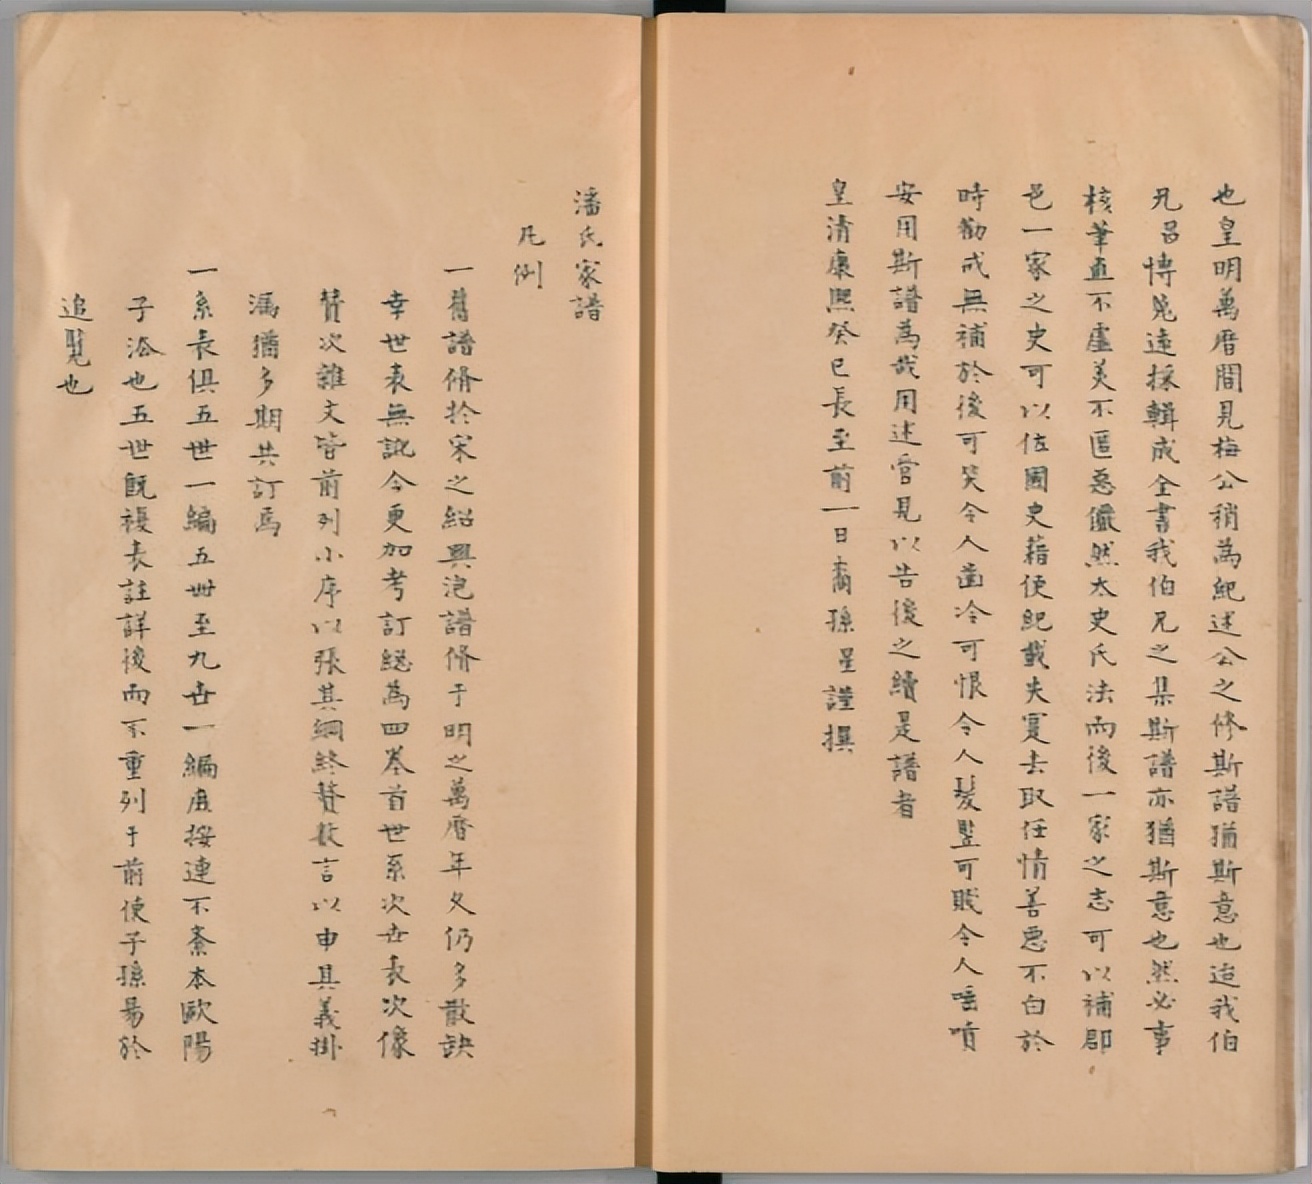 也皇明萬曆間見梅公稍為紀述公之修斯譜猶斯意也迨我伯
兄昌博蒐遠採輯成全書我伯兄之集斯譜亦猶斯意也然必事
核筆直不虛美不匿惡儼然太史氏法而後一家之志可以補郡
邑一家之史可以佐國史藉使紀載失寔去取任情善惡不白於
時勸戒無補於後可笑令人齒冷可恨令人髮豎可賤令人唾噴
安用斯譜為哉用述管見以告後之續是譜者
皇清康熙癸巳長至前一日裔孫星謹撰
潘氏家譜
凡例
一舊譜脩於宋之紹興迨譜脩于明之萬曆年久仍多散缺
幸世表無訛今更加考訂總為四卷首世系次世表次像
贊次雜文皆前列小序以張其綱終贅數言以申其義掛
漏猶多期共訂焉
一系表俱五世一編五世至九世一編庶按連不紊本歐陽
子法也五世既複表註詳後而不重列于前使子孫易於
追覽也